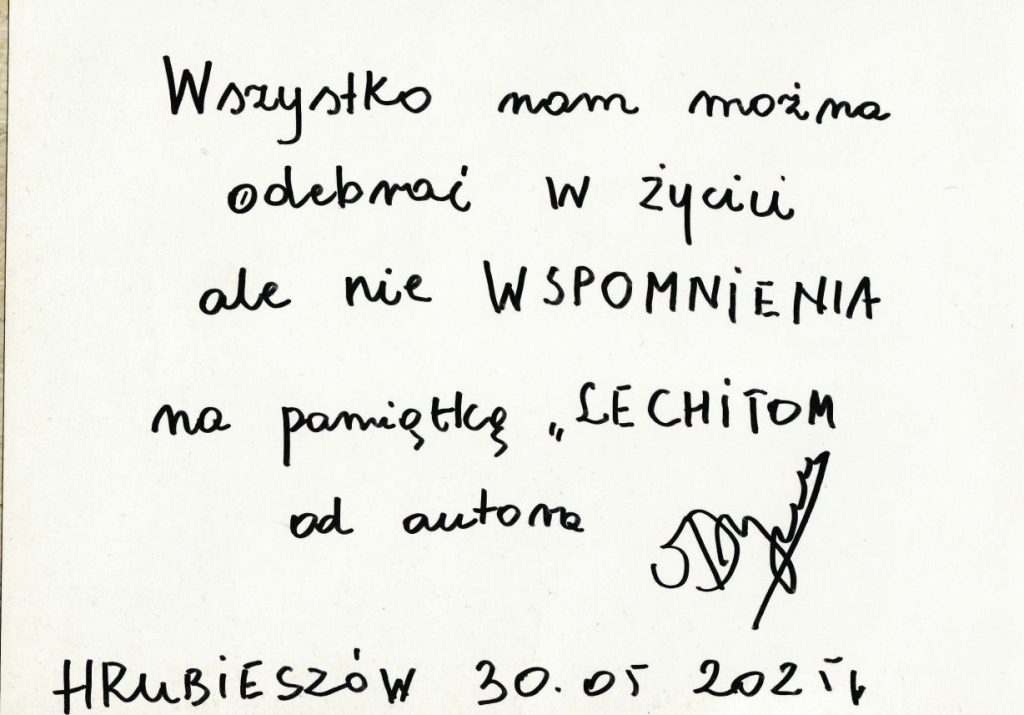 Wszystko nam można
odebrać w życiu
ale nie WSPOMNIENIA
na pamiątkę „LECHITOM
od autora
HRUBIESZÓW 30.05 2025r